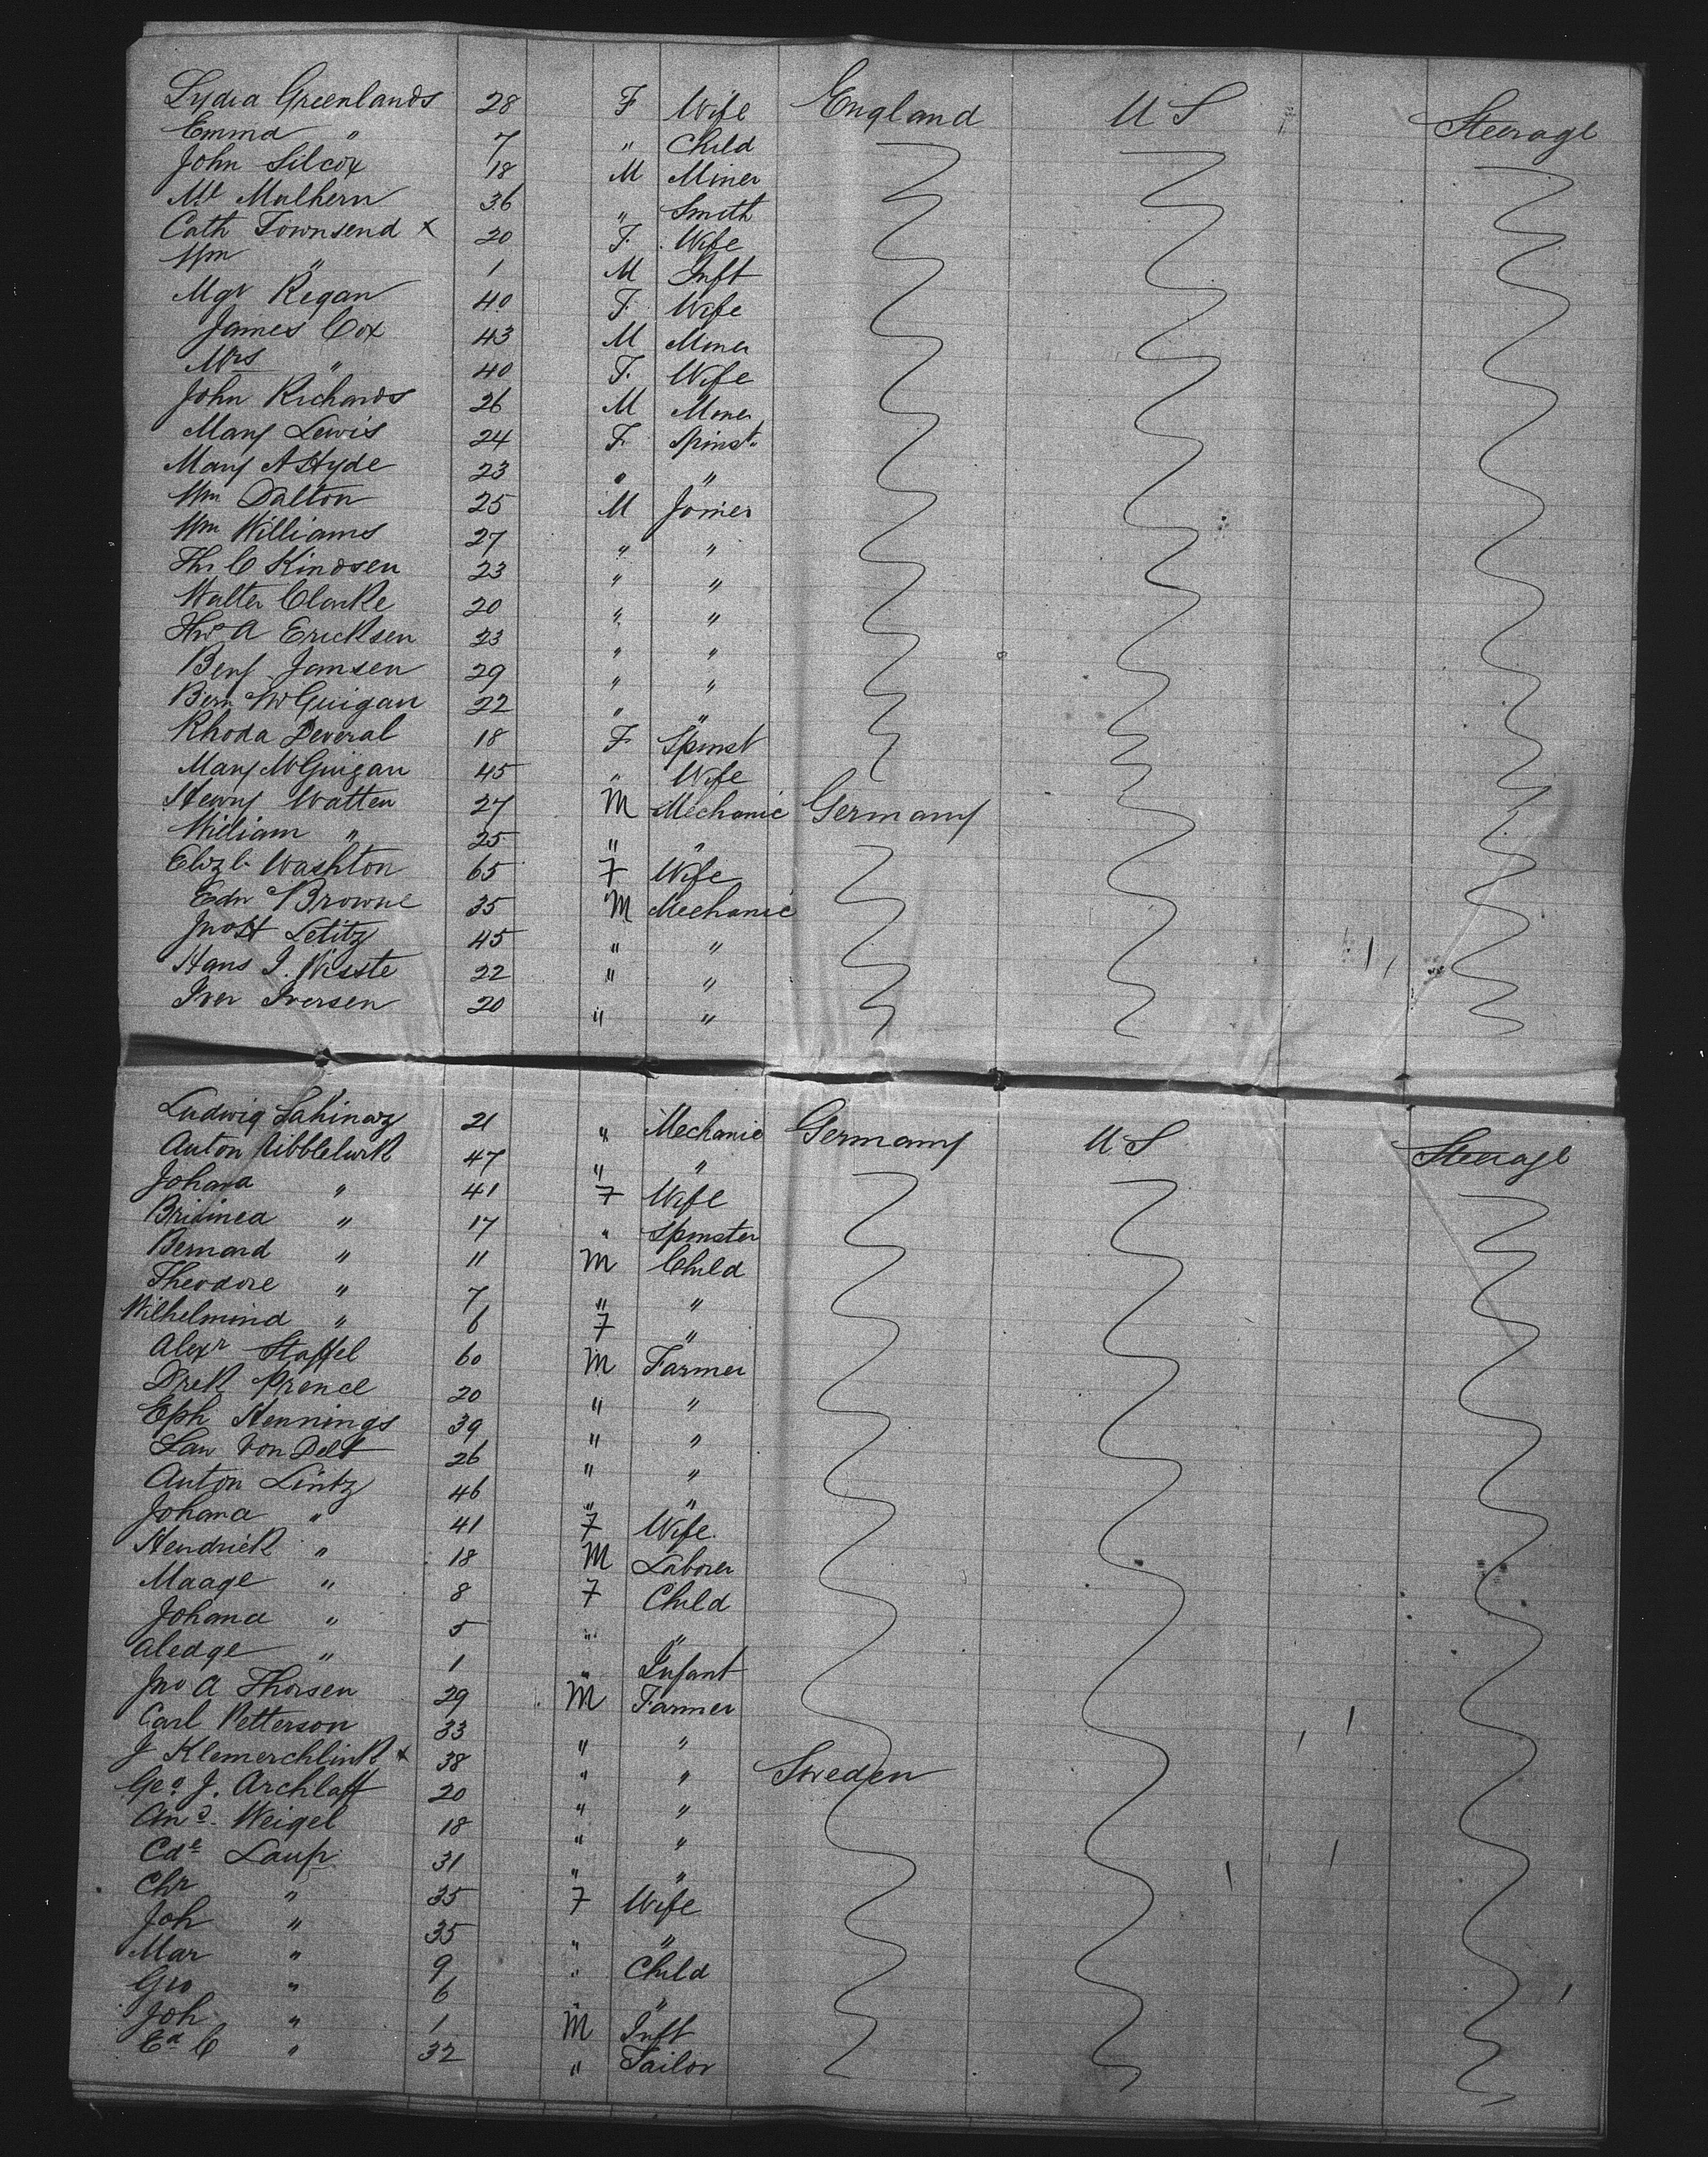 Lydia Greenlands 28 F Wife England U S Steerage
Emma " 7 " Child
John Silcox 18 M Miner
Mt Mulhern 36 " Smith
Cath Townsend x 20 F. Wife
Wm " 1 M Inft
Mgt Regan 40 F. Wife
James Cox 43 M Miner
Mrs " 40 F. Wife
John Richards 26 M Miner
Mary Lewis 24 F. Spinst"
Mary A Hyde 23 " "
Wm Dalton 25 M Joiner
Wm Williams 27 " "
Ths C Kindsen 23 " "
Walter Clarke 20 " "
Thos A Ericksen 23 " "
Benj Jamsen 29 " "
Bern McGuigan 22 " "
Rhoda Deveral 18 F Spinst
Mary McGuigan 45 " Wife
Henry Watten 27 M Mechanic Germany
William " 25 " "
Elizb Washton 65 F Wife
Edw Browne 35 M Mechanic
Jno H Letitz 45 " "
Hans J. Wisste 22 " "
Iver Iversen 20 " "
Ludwig 21 " Mechanic Germany U S Steerage
Anton 47 " "
Johana " 41 F Wife
" 17 " Spinster
Bernard " 11 M Child
Theodore " 7 " "
Wilhelmind " 6 F "
Alexr Staffel 60 M Farmer
Drek Prence 20 " "
Eph Hennings 39 " "
Law Von Delt 26 " "
Anton Lintz 46 " "
Johana " 41 F Wife.
Hendrick " 18 M Laborer
Maage " 8 F Child
Johana " 5 " "
Aledge " 1 " Infant
Jno A Thorsen 29 M Farmer
Carl Petterson 33 " "
J Klemerchlink x 38 " " Sweden
Geo. J. Archlaff 20 " "
And. Weigel 18 " "
Cde Laup 31 " "
Chr " 35 F Wife
Joh " 35 " "
Mar " 9 " Child
Geo " 6 " "
Joh " 1 M Inft
Ed C " 32 " Tailor